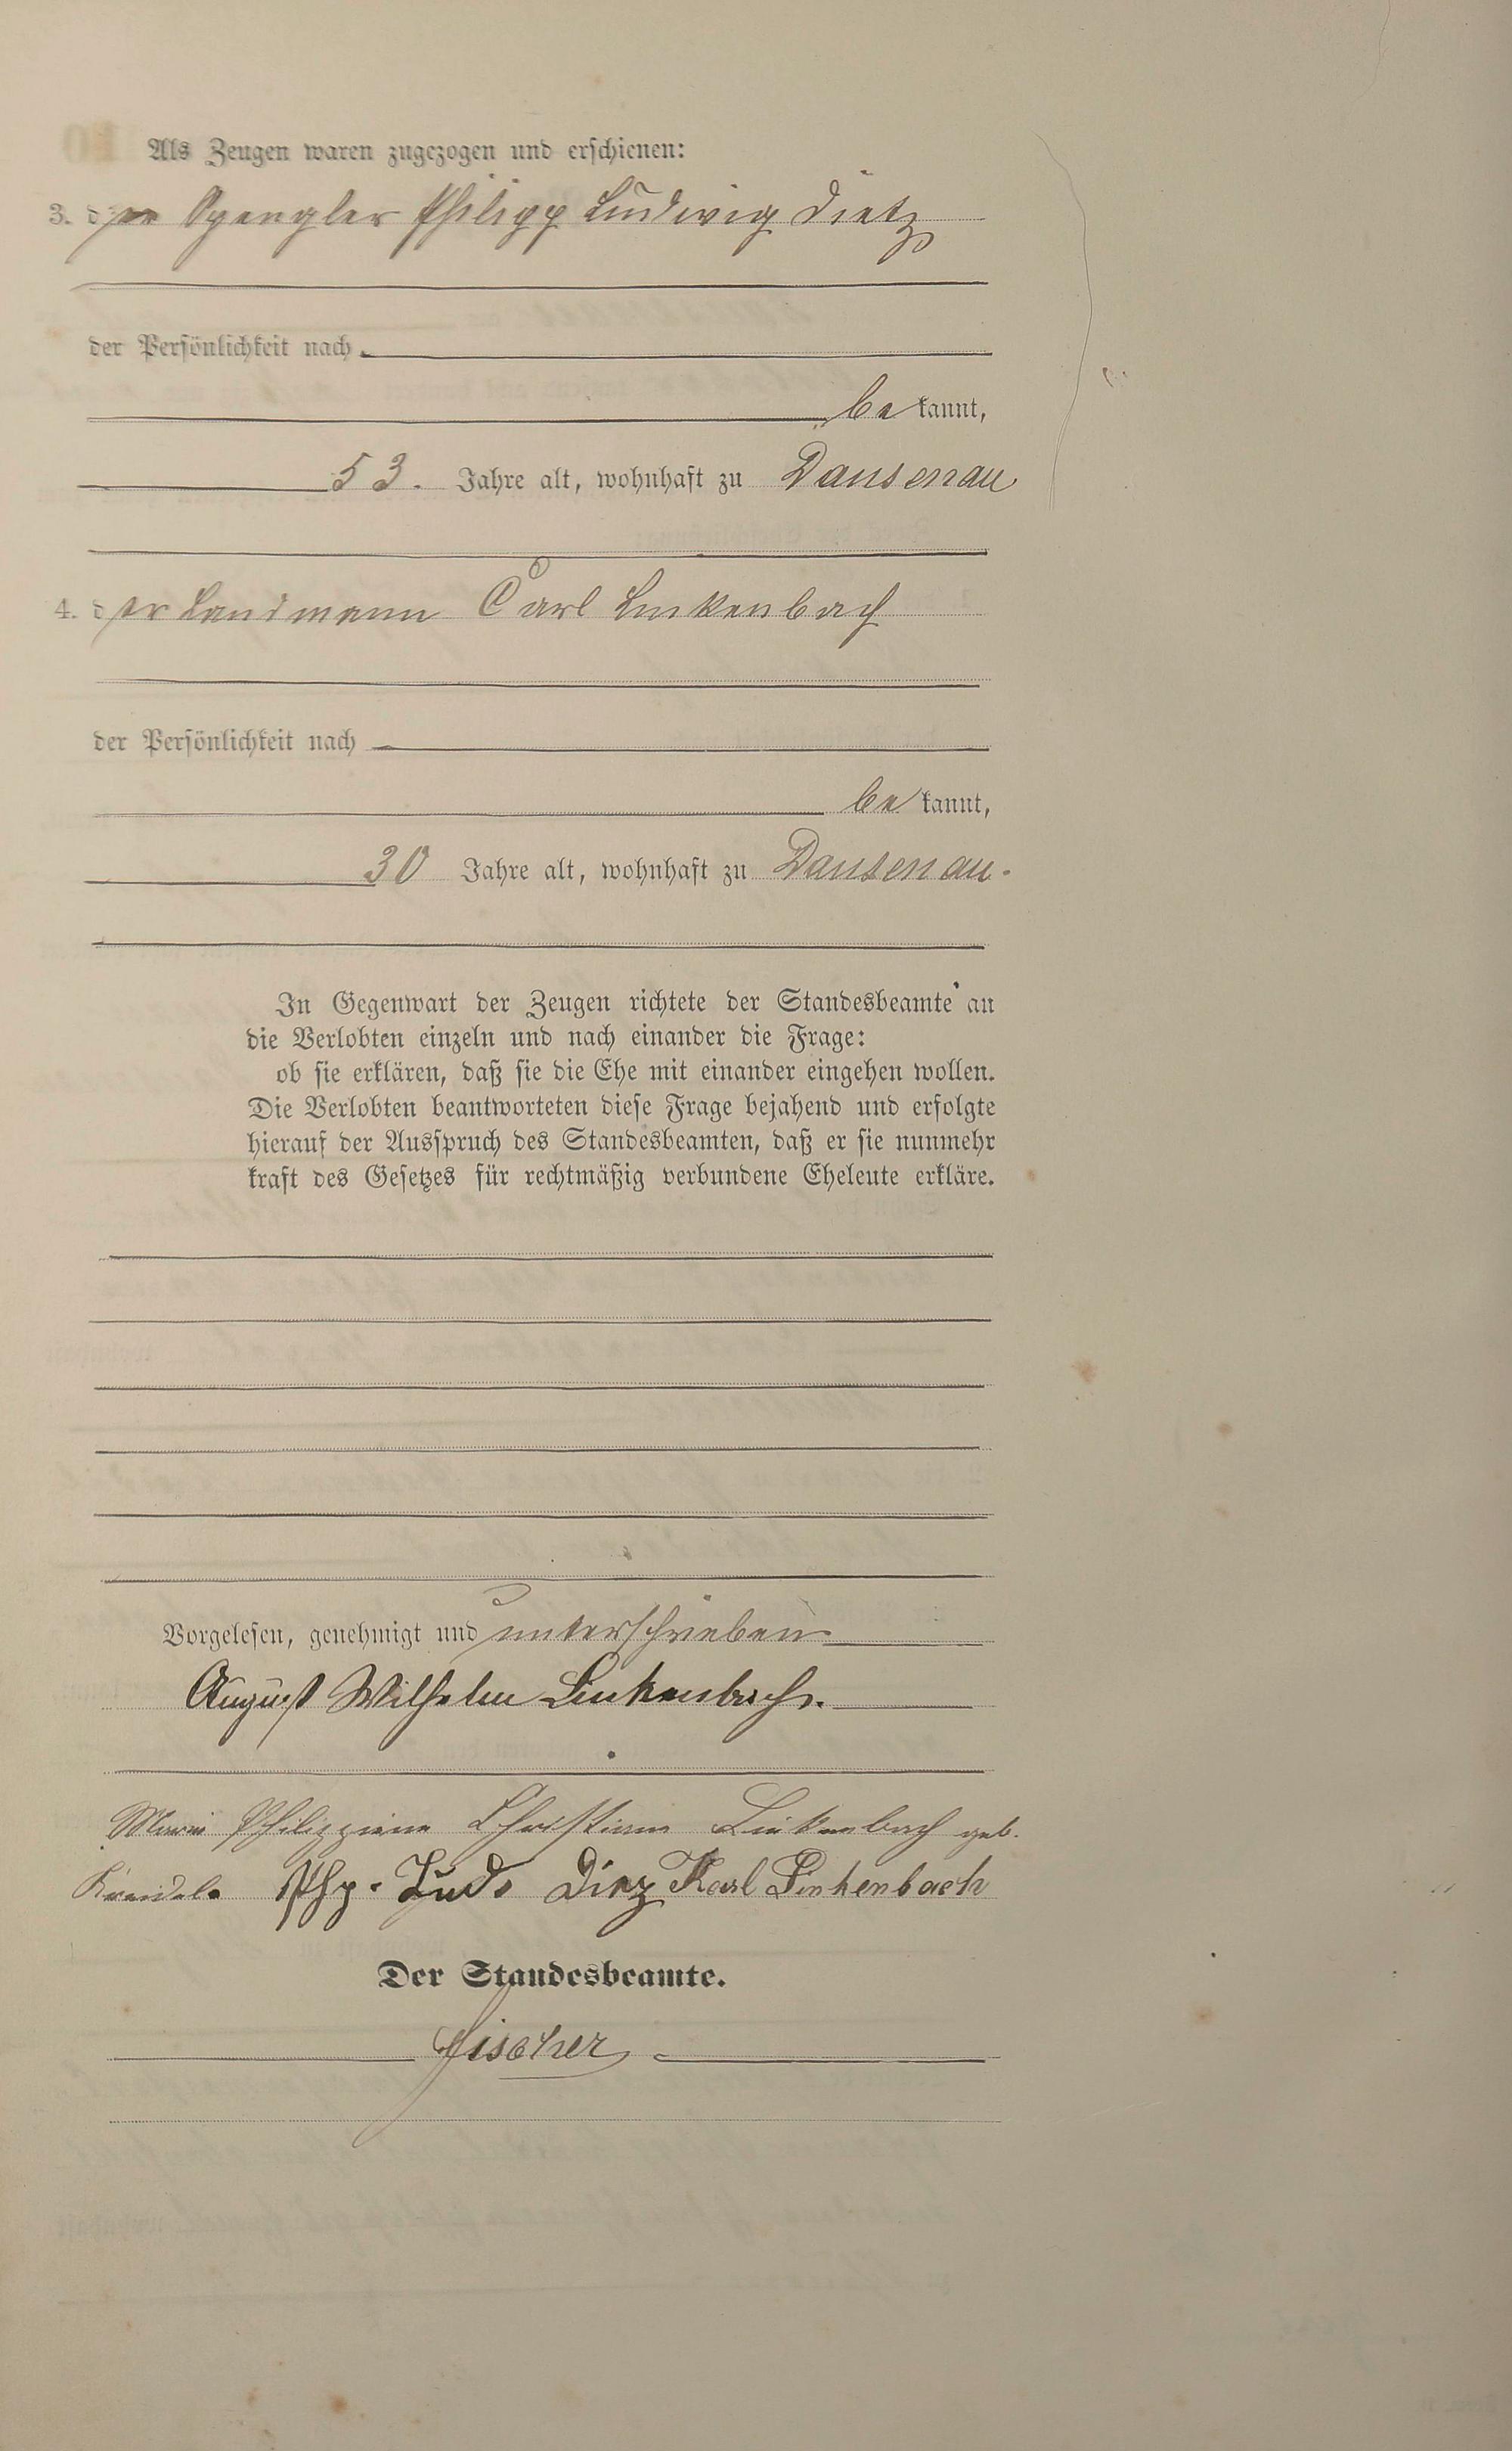 Als Zeugen waren zugezogen und erschienen:
3. der Spengler Philipp Ludwig Dietz
der Persönlichkeit nach
be kannt,
53. Jahre alt, wohnhaft zu Dausenau
4. der Landmann Carl Linkenbach
der Persönlichkeit nach
be kannt,
30 Jahre alt, wohnhaft zu Dausenau.
In Gegenwart der Zeugen richtete der Standesbeamte an
die Verlobten einzeln und nach einander die Frage:
ob sie erklären, daß sie die Ehe mit einander eingehen wollen.
Die Verlobten beantworteten diese Frage bejahend und erfolgte
hierauf der Ausspruch des Standesbeamten, daß er sie nunmehr
kraft des Gesetzes für rechtmäßig verbundene Eheleute erkläre.
Vorgelesen, genehmigt und unterschrieben
August Wilhelm Linkenbach.
Philippine Linkenbach geb.
Php. Ludw Karl Linkenbach
Der Standesbeamte.
Fischer